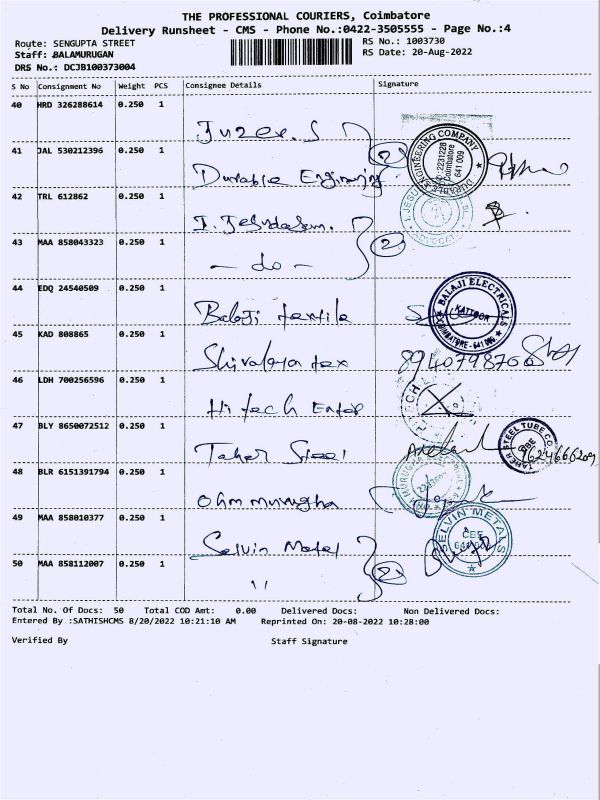 THE PROFESSIONAL COURIERS, Coimbatore
Delivery Runsheet - CMS - Phone No.:0422-3505555 - Page No.:4
Route: SENGUPTA STREET
RS No.: 1003730
Staff: BALAMURUGAN
RS Date: 20-Aug-2022
DRS No.: DCJB100373004
S No Consignment No Weight PCS Consignee Details Signature
40 HRD 326288614 0.250 1
Juzer. S
41 JAL 530212396 0.250 1
2
DURABLE ENGINEERING COMPANY
2231228
Coimbatore
641 009
Durable Engineering
42 TRL 612862 0.250 1
I. Jesudasan.
43 MAA 858043323 0.250 1
2
- do -
44 EDQ 24540509 0.250 1
Balaji textile
BALAJI ELECTRICALS
KATTOOR
COIMBATORE - 641 009
45 KAD 808865 0.250 1
Shivalaya tex 8940798706
46 LDH 700256596 0.250 1
Hi tech Enterp
47 BLY 8650072512 0.250 1
Taher Steel
TAHER STEEL TUBE CO.
CBE
48 BLR 6151391794 0.250 1
Ohm muruga
49 MAA 858010377 0.250 1
Selvin Metal
SELVIN METALS
CBE
50 MAA 858112007 0.250 1
" 2
Total No. Of Docs: 50 Total COD Amt: 0.00 Delivered Docs: Non Delivered Docs:
Entered By :SATHISHCMS 8/20/2022 10:21:10 AM Reprinted On: 20-08-2022 10:28:00
Verified By Staff Signature